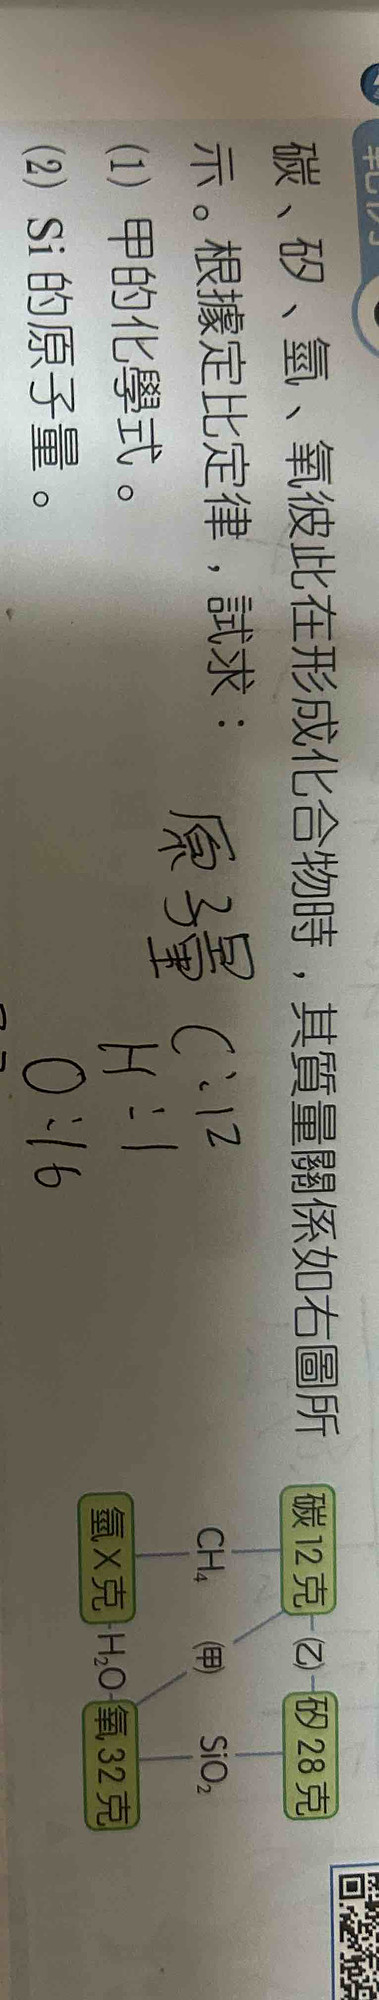 碳、矽、氫、氧彼此在形成化合物時，其質量關係如右圖所
示。根據定比定律，試求：
(1) 甲的化學式。
(2) Si 的原子量。
原子量 C:12
H:1
O:16
碳 12 克 (乙) 矽 28 克
CH₄ (甲) SiO₂
氫 X 克 H₂O 氧 32 克